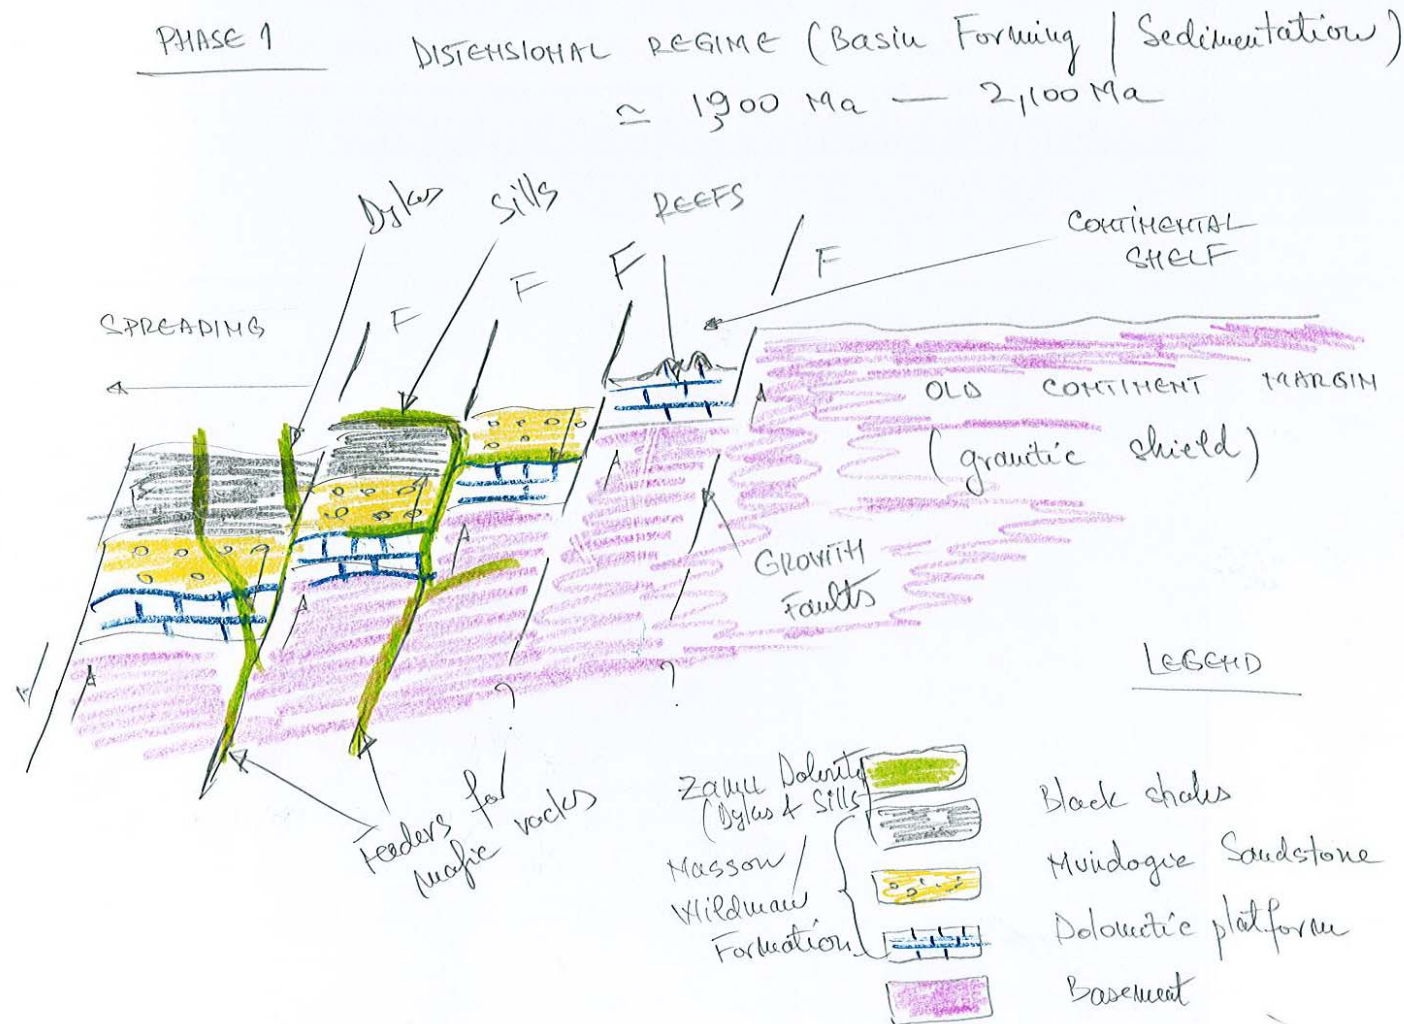 PHASE 1
DISTENSIONAL REGIME (Basin Forming / Sedimentation)
≃ 1,900 Ma — 2,100 Ma
Dykes
Sills
REEFS
CONTINENTAL
SHELF
F
F
F
F
SPREADING
OLD CONTINENT MARGIN
(granitic shield)
GROWTH
Faults
?
?
Feeders for
mafic rocks
LEGEND
Zamu Dolerite
(Dykes & Sills)
Black shales
Masson /
Wildman
Formation
Mundogie Sandstone
Dolomitic platform
Basement